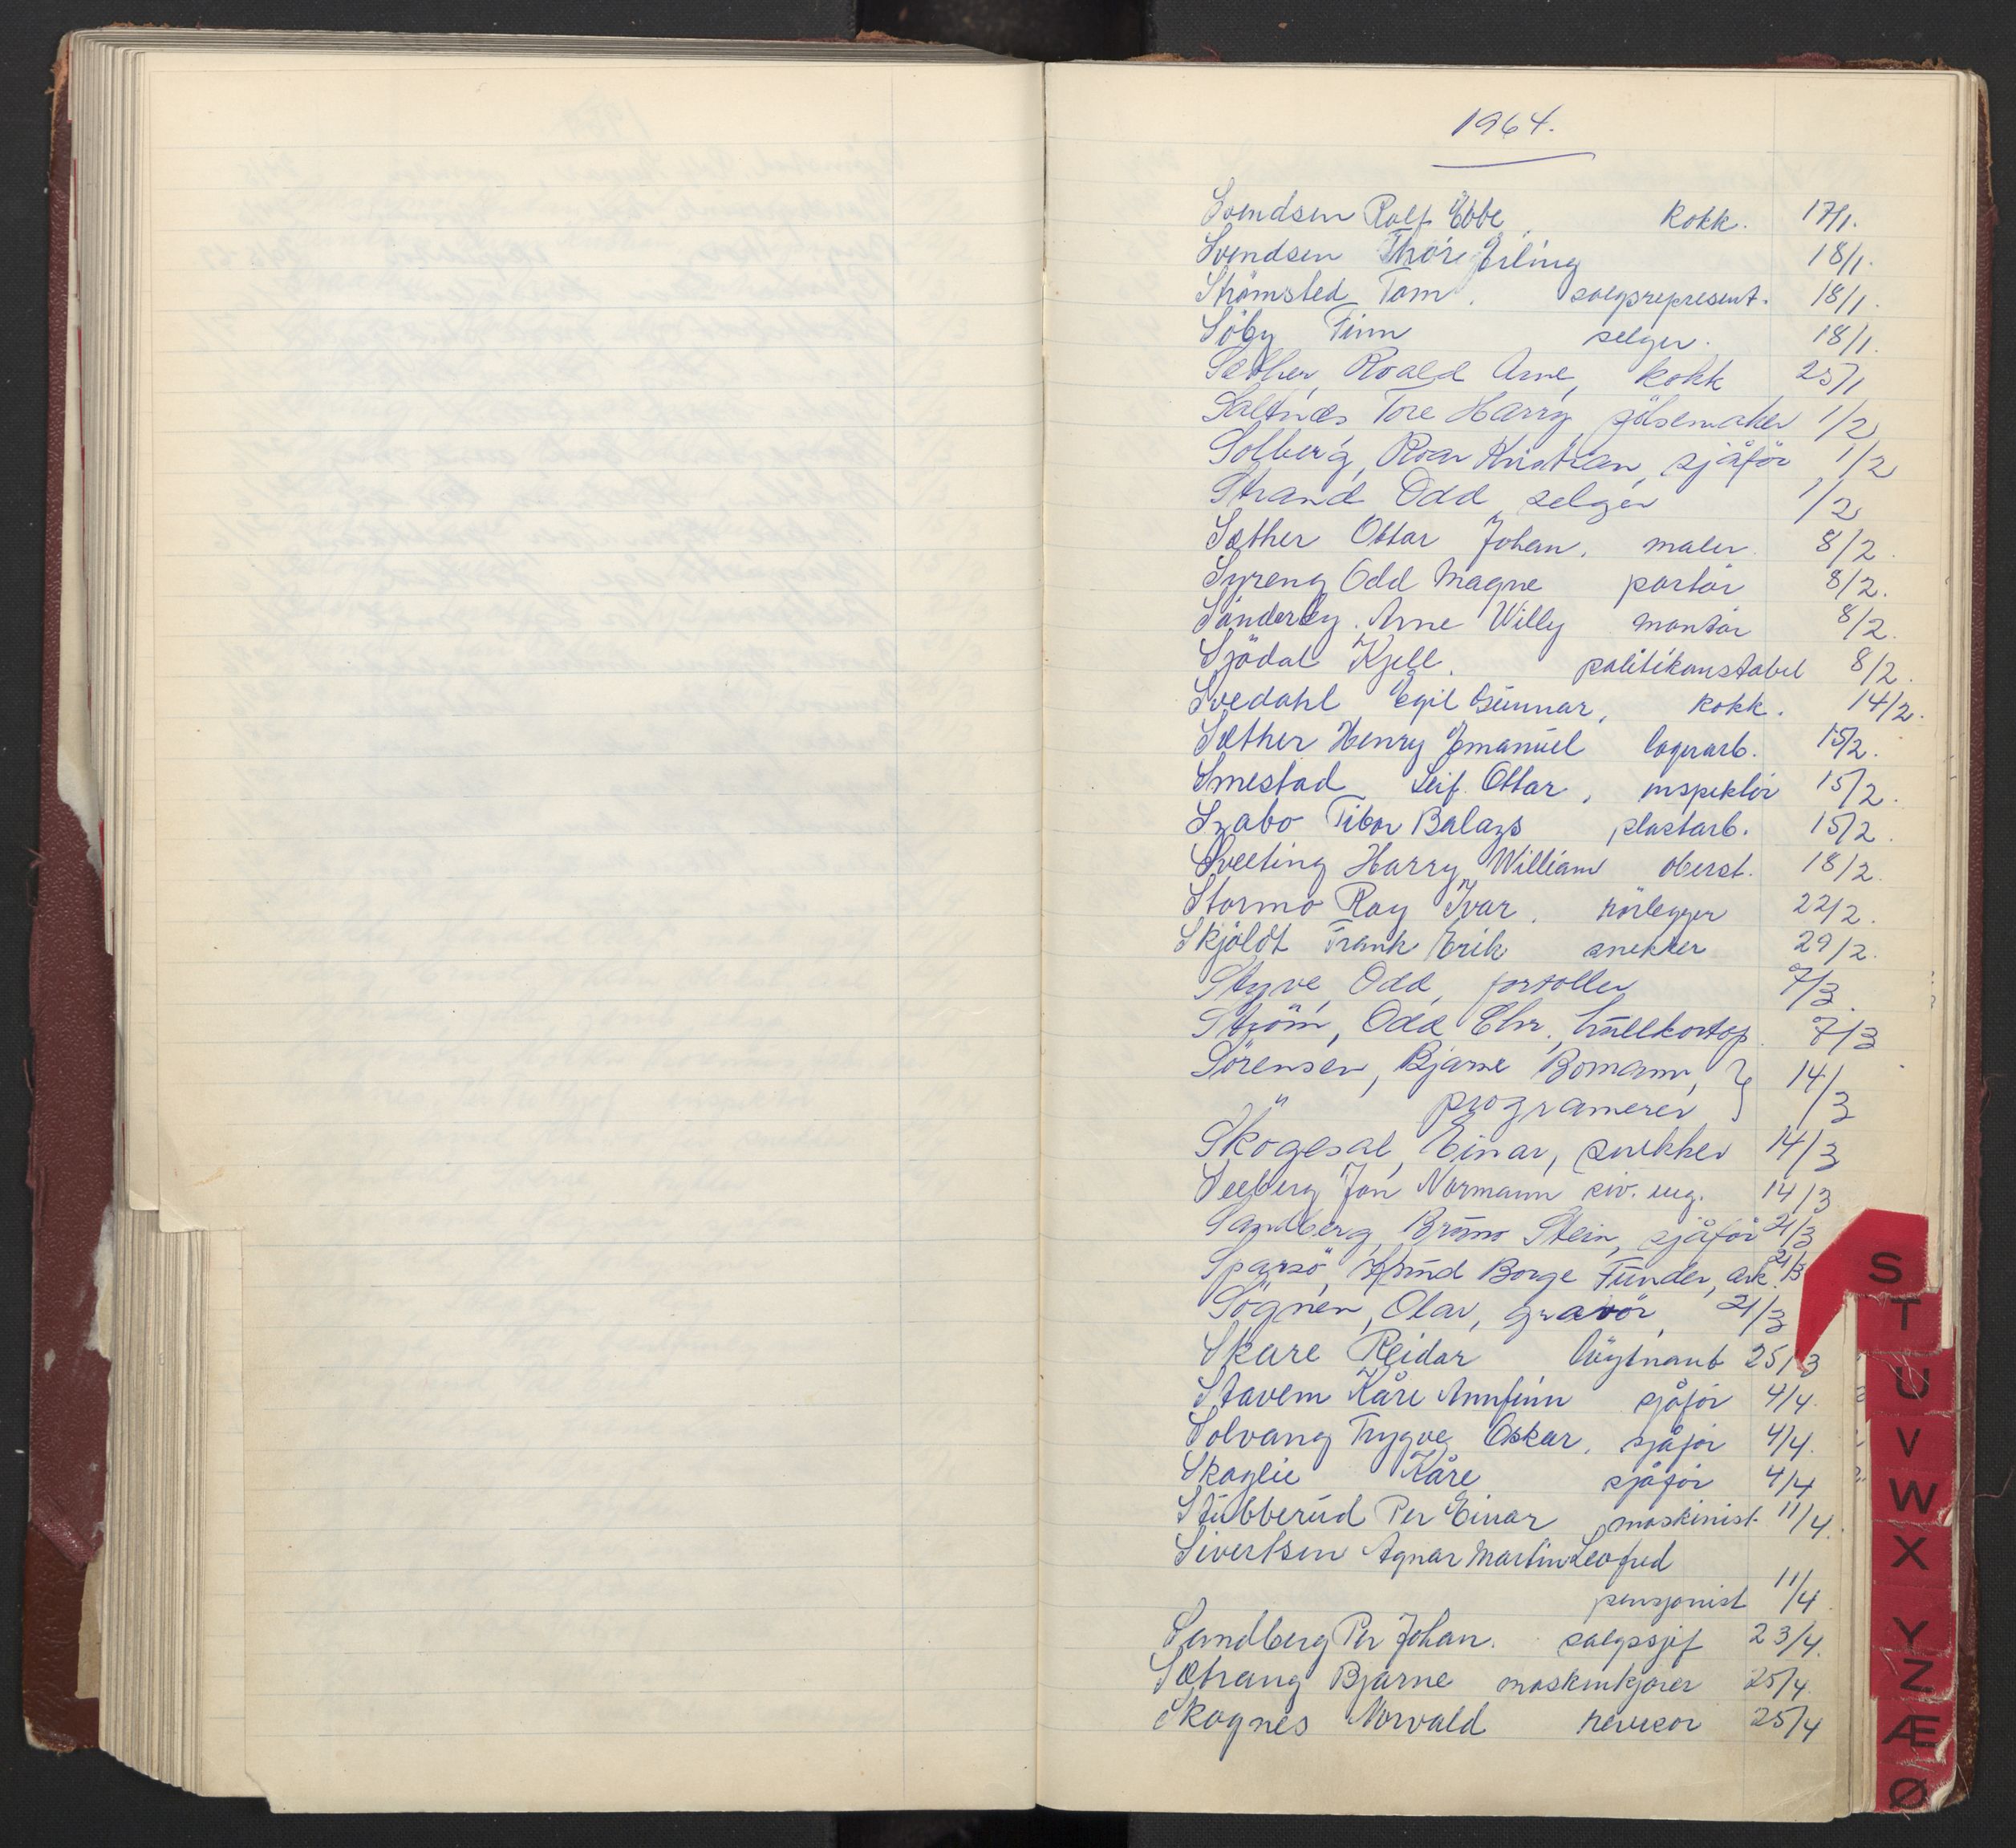 1964.
Svendsen Ralf Ebbe, kokk. 17/1.
Svendsen Thore Erling 18/1.
Strömsted Tom. salgsrepresent. 18/1.
Söby Finn selger. 18/1.
Sæther, Roald Arne, kokk 25/1
Saltnæs Tore Harry, pölsemaker 1/2
Solberg, Roar Kristian, sjåför 1/2
Strand Odd, selger 1/2
Sæther Ottar Johan. maler 8/2.
Syreng Odd Magne portör 8/2.
Sönderby. Arne Willy montör 8/2.
Sjödal Kjell. politikonstabel 8/2.
Svedahl Egil Gunnar, kokk. 14/2.
Sæther Henry Emanuel lagerarb. 15/2.
Smestad Leif Ottar, inspektör 15/2.
Szabo Tibor Balazs plastarb. 15/2.
Sveeting Harry William oberst. 18/2.
Stormo Roy Ivar. rörlegger 22/2.
Skjöldt Frank Erik snekker 29/2.
Styve, Odd, fortoller 7/3.
Ström, Odd Chr., hullkortop. 7/3
Sörensen, Bjarne Bomann, } 14/3
" programerer
Skogesal, Einar, snekker 14/3
Seeberg Jon Normann siv. ing. 14/3
Sandberg, Bruno Stein, sjåför 21/3
Sparsö, Knud Borge Funder, ark. 21/3
Sögnen, Olav, gravör, 21/3
Skare Reidar löytnant 25/3
Stavem Kåre Annfinn sjåför 4/4.
Solvang Trygve Oskar. sjåför 4/4.
Skoglie Kåre sjåför 4/4
Stubberud Per Einar maskinist 11/4.
Sivertsen Agnar Martin Leofred
pensjonist 11/4.
Sandberg Per Johan. salgssjef 23/4.
Sætrang Bjarne maskinkjörer 25/4.
Skognes Norvald revisor 25/4
S
T
U
V
W
X
Y
Z
Æ
Ø